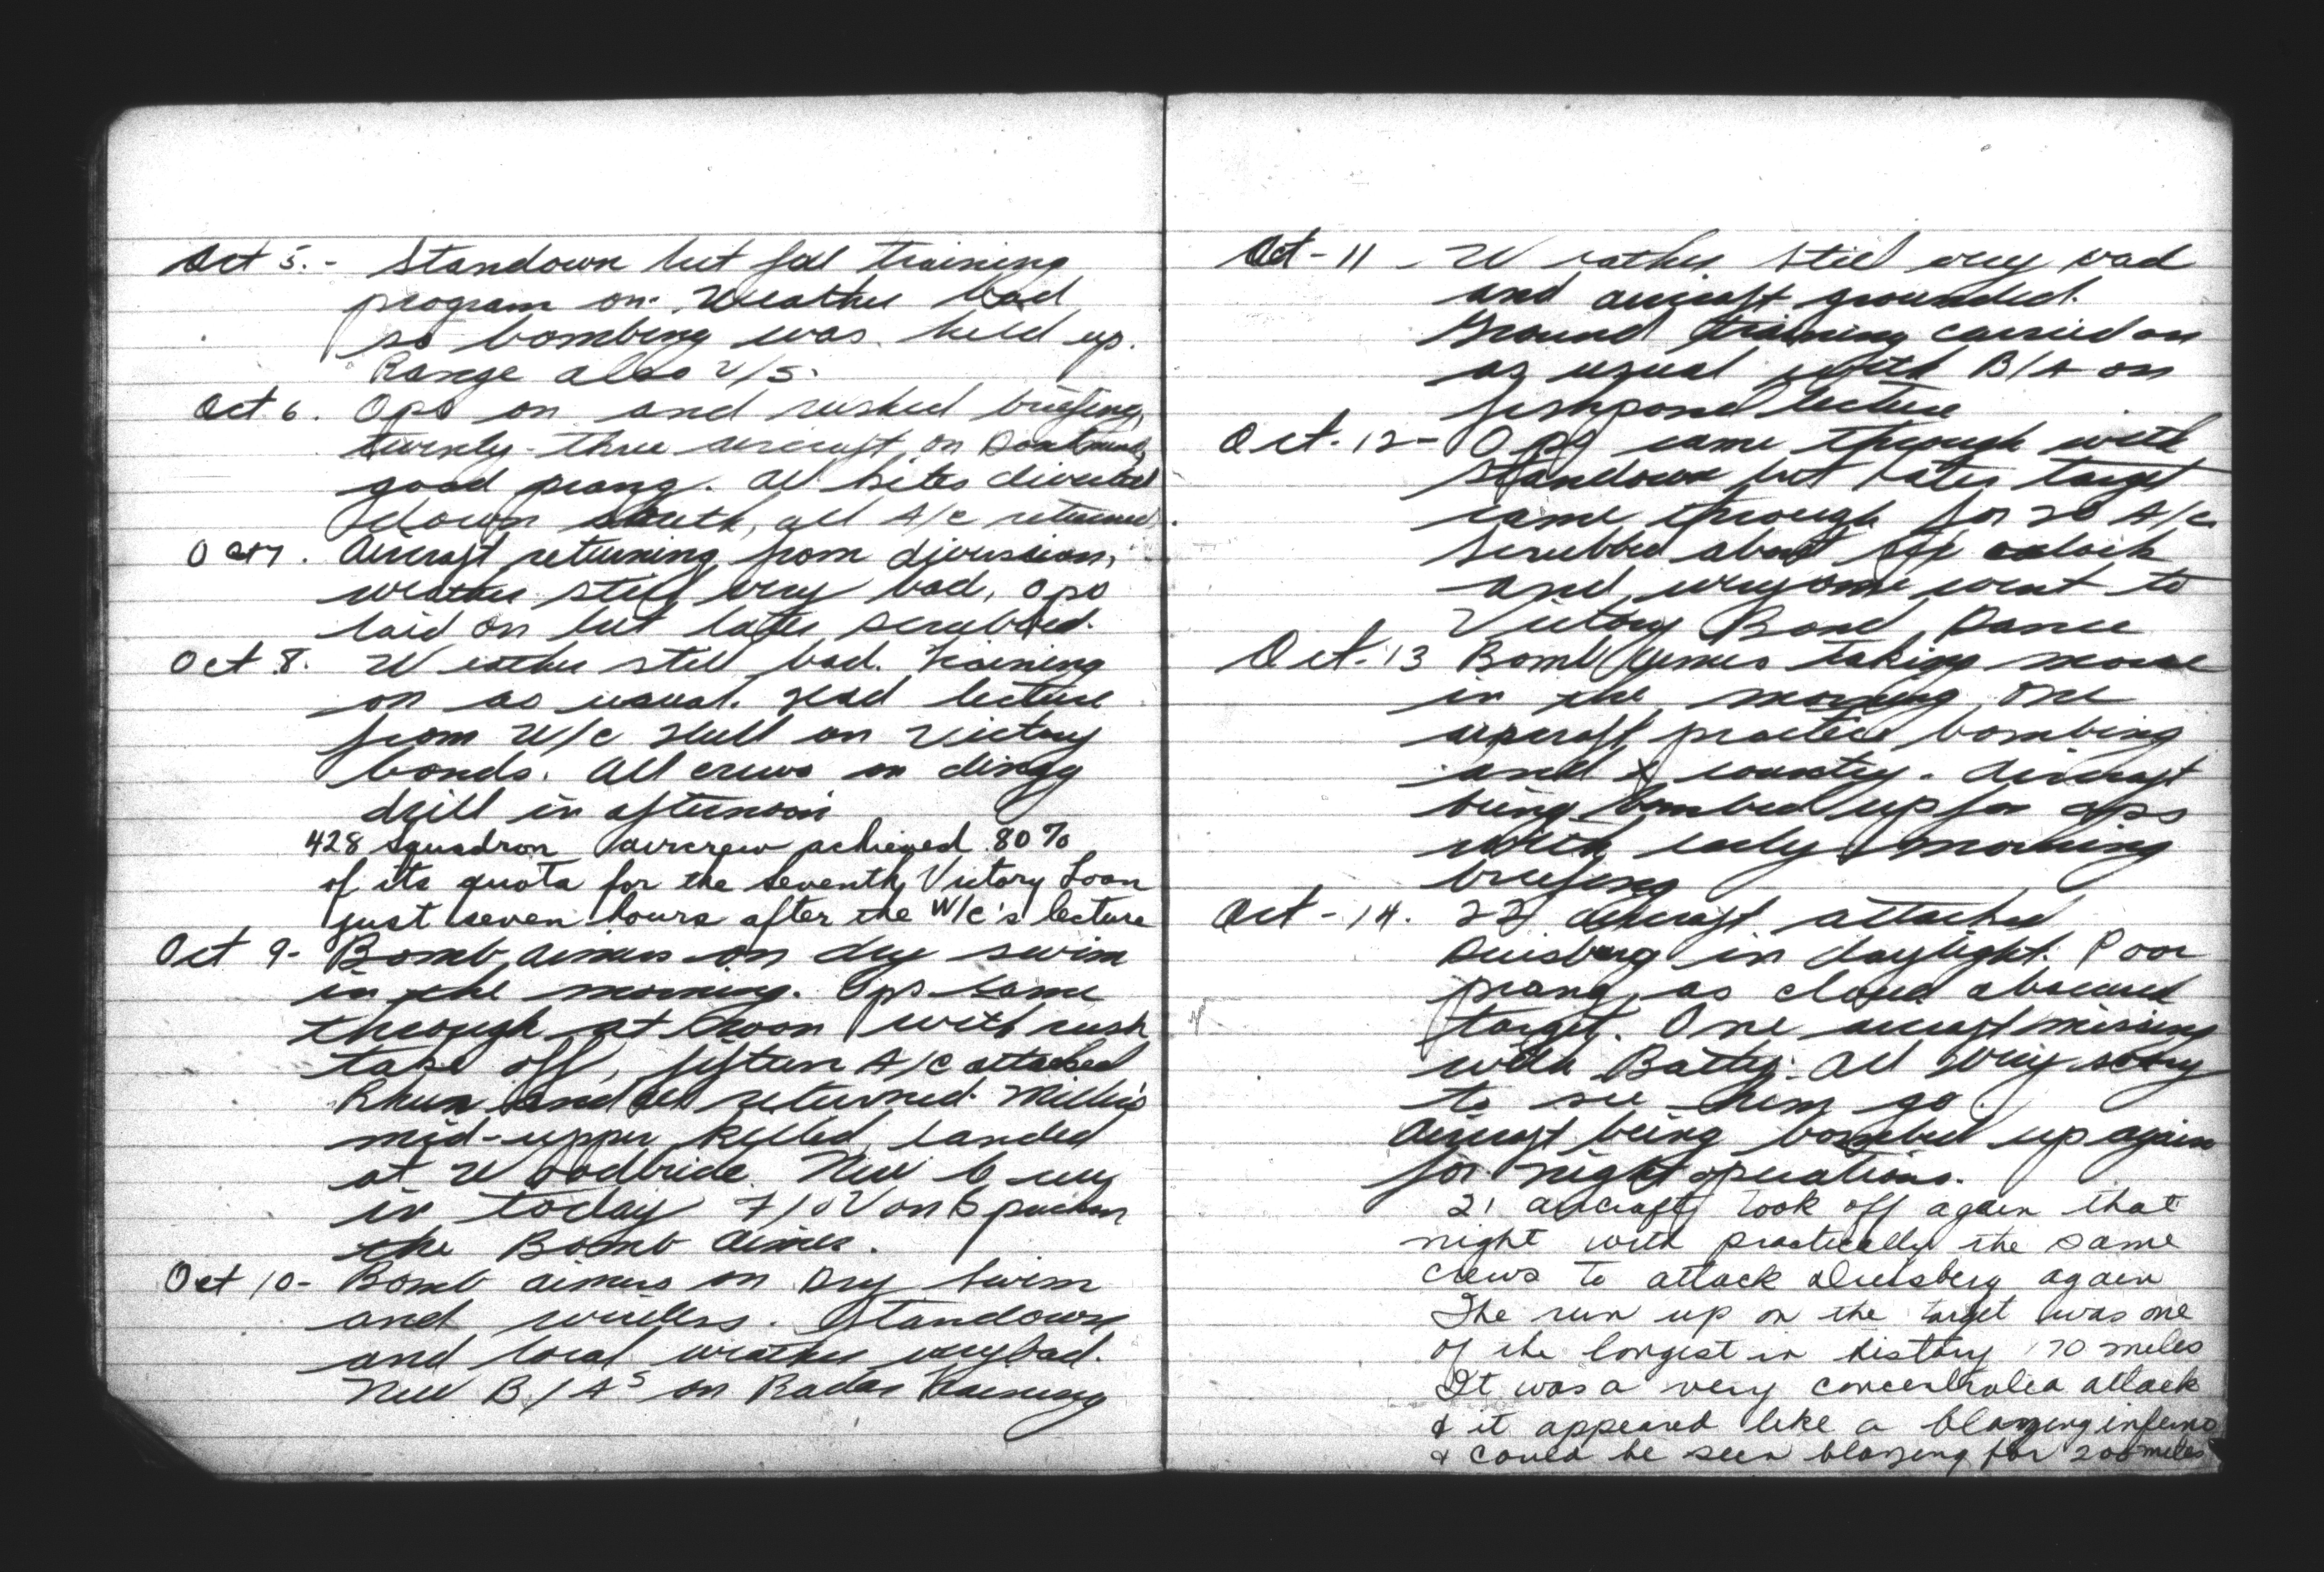 Oct 5. - Standown but full training
program on. Weather bad
so bombing was held up.
Range also U/S.
Oct 6. Ops on and rushed briefing,
twenty-three aircraft on Dortmund,
good prang. All kites diverted
down south, all A/C returned.
Oct 7. Aircraft returning from diversion,
weather still very bad, ops
laid on but later scrubbed.
Oct 8. Weather still bad. Training
on as usual. Had lecture
from W/C Hull on Victory
bonds. All crews on dingy
drill in afternoon
428 Squadron aircrew achieved 80%
of its quota for the seventh Victory Loan
just seven hours after the W/C's lecture
Oct 9- Bomb aimers on dry swim
in the morning. Ops came
through at noon with rush
take off, fifteen A/C attacked
and all returned.
mid-upper killed, landed
at Woodbride. New crew
in today F/O
the Bomb aimer.
Oct 10- Bomb aimers on Dry Swim
and wireless. Standown
and local weather very bad.
New B/A's on Radar training
Oct-11 - Weather still very bad
and aircraft grounded.
Ground training carried on
as usual with B/A on
fishpond lecture
Oct. 12- Ops came through with
standown but later target
came through for 20 A/C.
Scrubbed about six oclock
and everyone went to
Victory Bond Dance
Oct. 13 Bomb aimers taking
in the morning one
aircraft practice bombing
and X country. Aircraft
being bombed up for ops
with early morning
briefing
Oct - 14. 22 aircraft attacked
Duisburg in daylight. Poor
prang, as cloud obscured
target. One aircraft missing
with Batty. All very sorry
to see them go.
Aircraft being bombed up again
for night operations.
21 aircraft took off again that
night with practically the same
crews to attack Duisberg again
The run up on the target was one
of the longest in history 70 miles
It was a very concentrated attack
& it appeared like a blazing inferno
& could be seen blazing for 200 miles